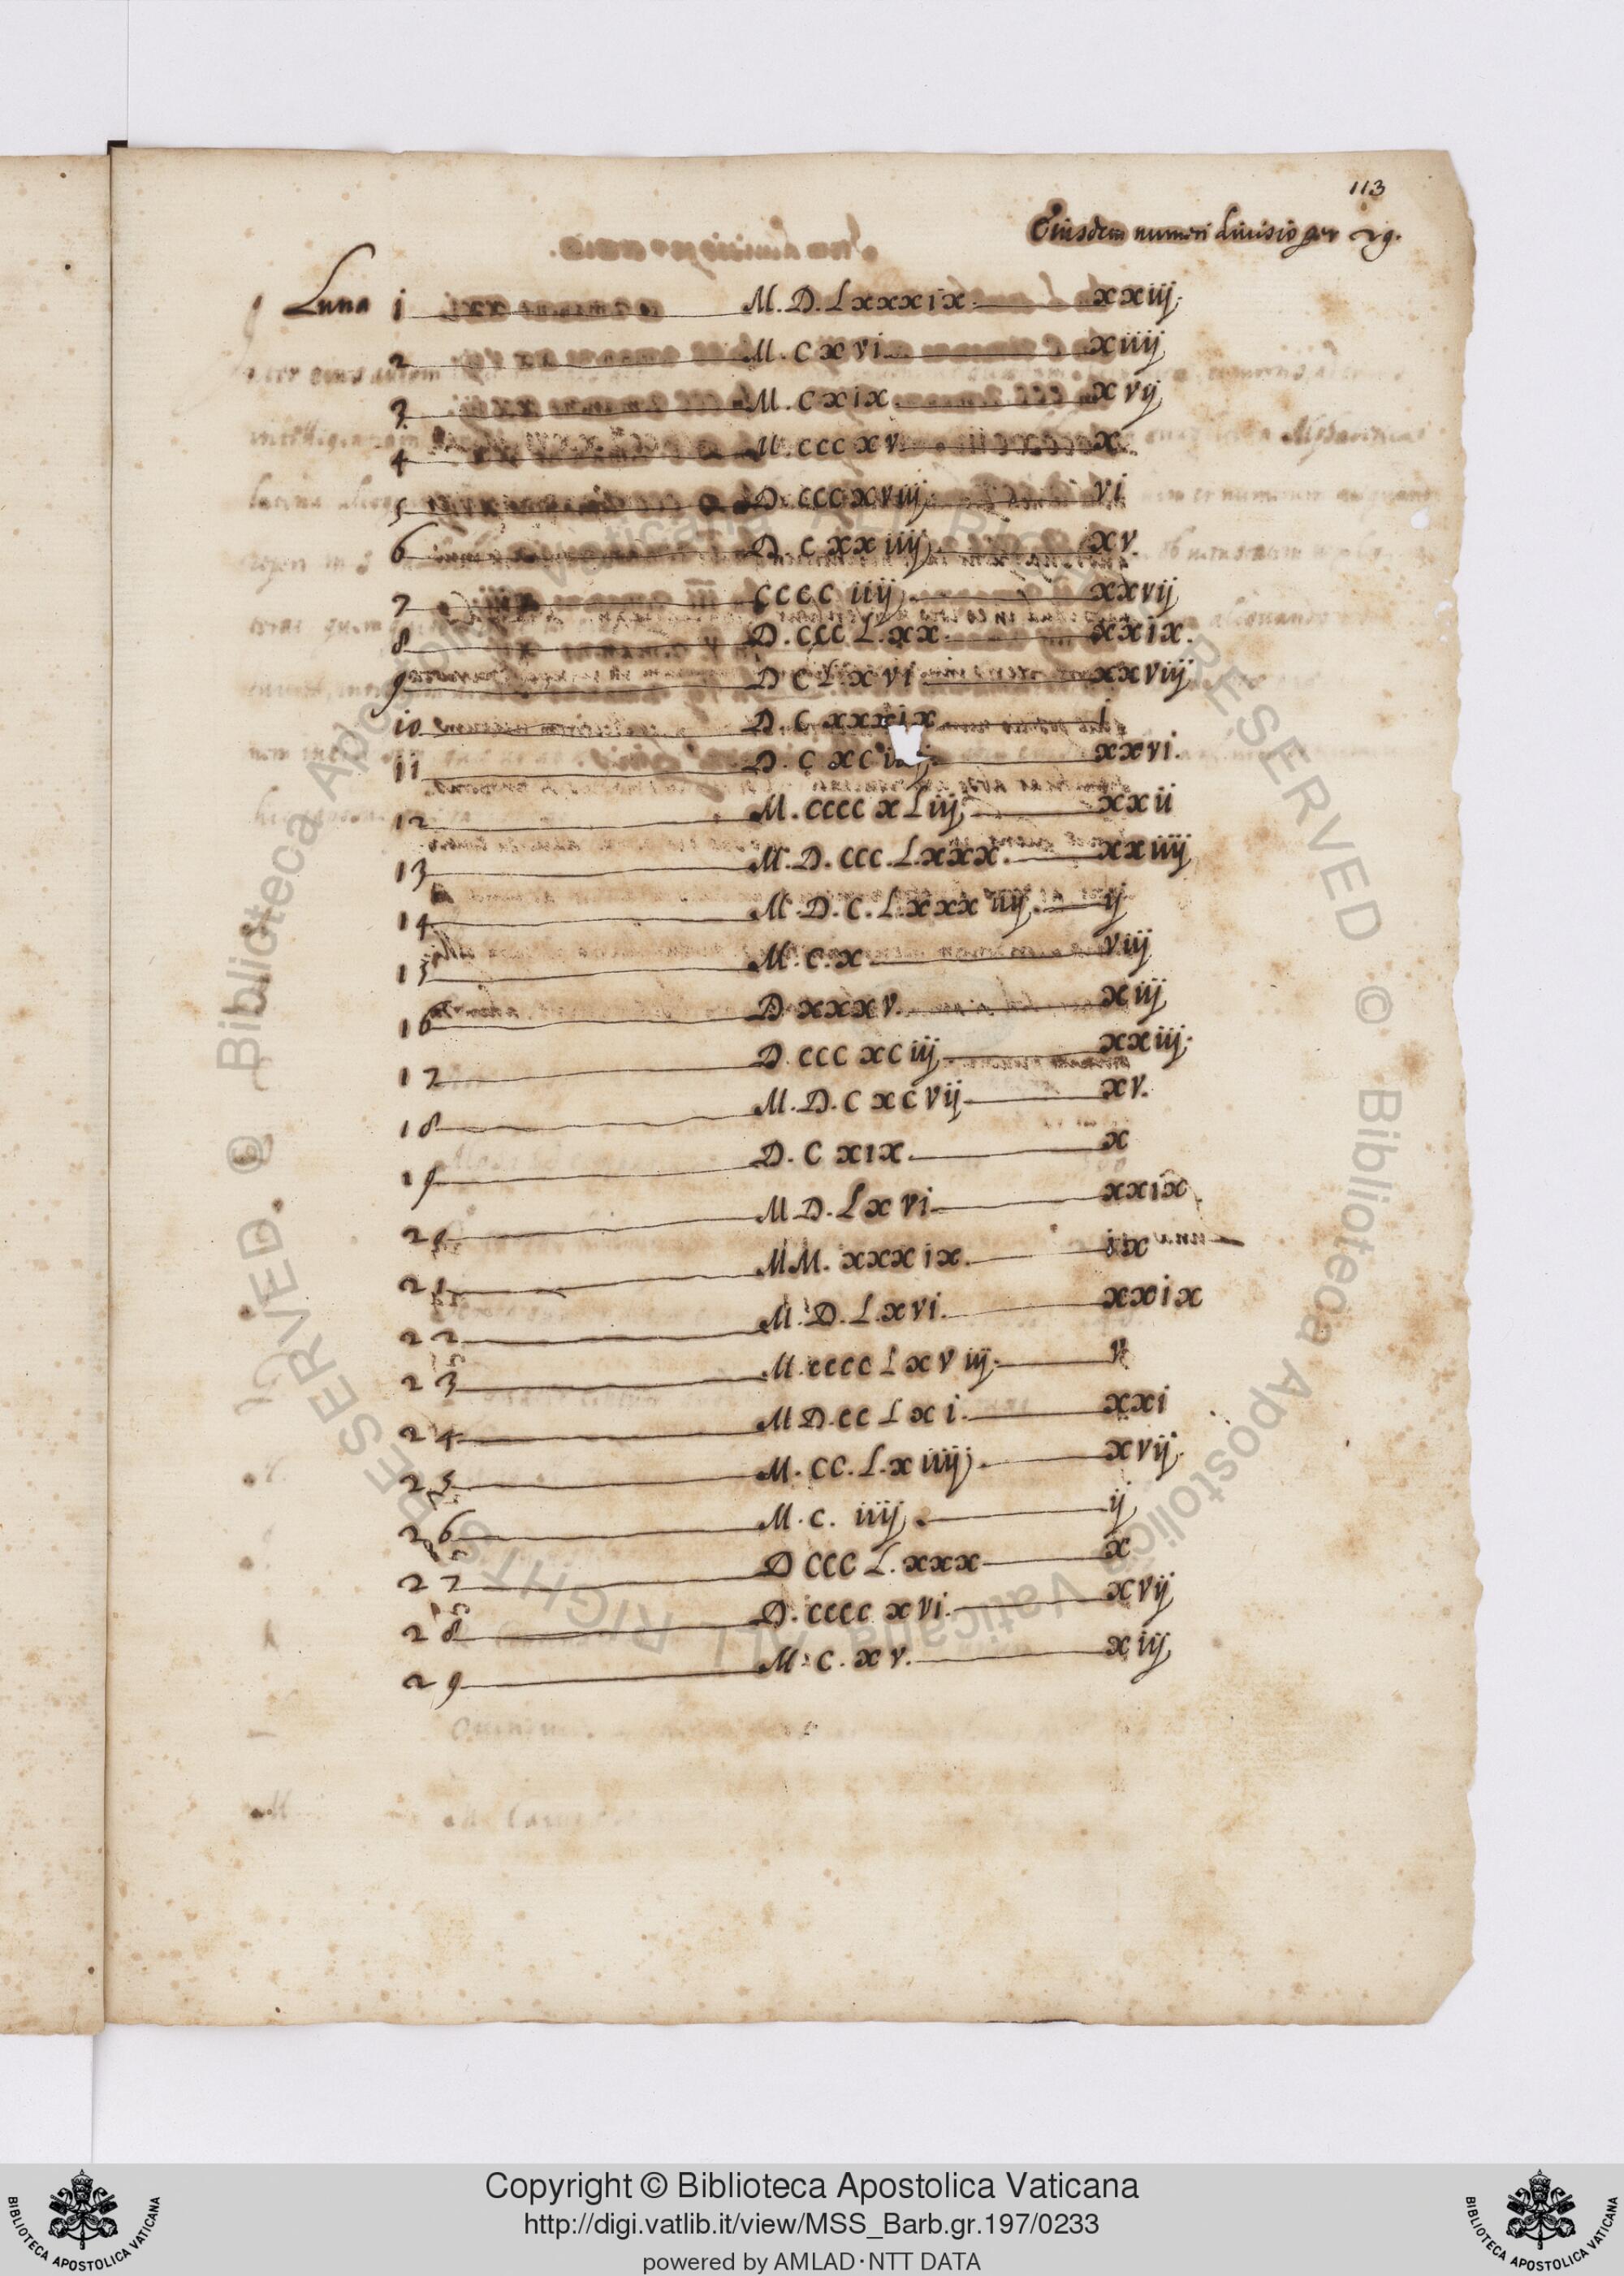 113
Eiusdem numeri divisio per 29.
Luna 1 M.D.Lxxxix. xxiij.
2 M.cxvi. xiiij
3 M.cxix. xvij
4 M.cccxv. x.
5 D.cccxviij. vi
6 D.cxxiiij. xv.
7 cccciiij. xxvij
8 D.cccL.xx. xxix.
9 DcLxvi. xxviij
10 D.cxxxix i
11 xxvi.
12 M.ccccxLiij. xxii
13 M.D.ccc.L.xxx. xxiiij
14 M.D.c.L.xxxiiij. ij
15 M.c.x. viij
16 Dxxxv. xiij
17 D.cccxciij. xxiij.
18 M.D.cxcvij. xv.
19 D.cxix. x
20 MD.Lxvi. xxix.
21 MM.xxxix. ix
22 M.D.L.xvi. xxix
23 M.ccccLxviij. v
24 MD.ccLxi. xxi
25 M.cc.L.xiiij. xvij.
26 M.c.iiij. ij
27 DcccL.xxx x
28 D.ccccxvi. xvij
29 M.c.xv. xiij
Copyright © Biblioteca Apostolica Vaticana
http://digi.vatlib.it/view/MSS_Barb.gr.197/0233
powered by AMLAD·NTT DATA
BIBLIOTECA APOSTOLICA VATICANA
BIBLIOTECA APOSTOLICA VATICANA